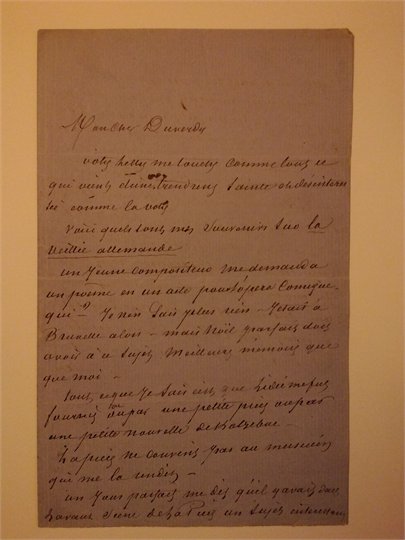 Mon cher Duverdy
votre lettre me touche comme tout ce
qui vient d'une tendresse sainte et désintéres
sée comme la votre
Voici quels sont mes souvenirs sur la
veillée allemande
un jeune compositeur me demanda
un poème en un acte pour l'opéra Comique-
qui? Je n'en sais plus rien - J'étais à
Bruxelle alors - mais Noël Parfait doit
avoir à ce sujet meilleure mémoire que
que moi -
tout ce que je sais c'est que l'idée me fut
fournie ou par une petite pièce ou par
une petite nouvelle de Kotzebue -
La pièce ne convint pas au musicien
qui me la rendit -
un jour parfait me dit qu'il y avait dans
la scène de la un sujet